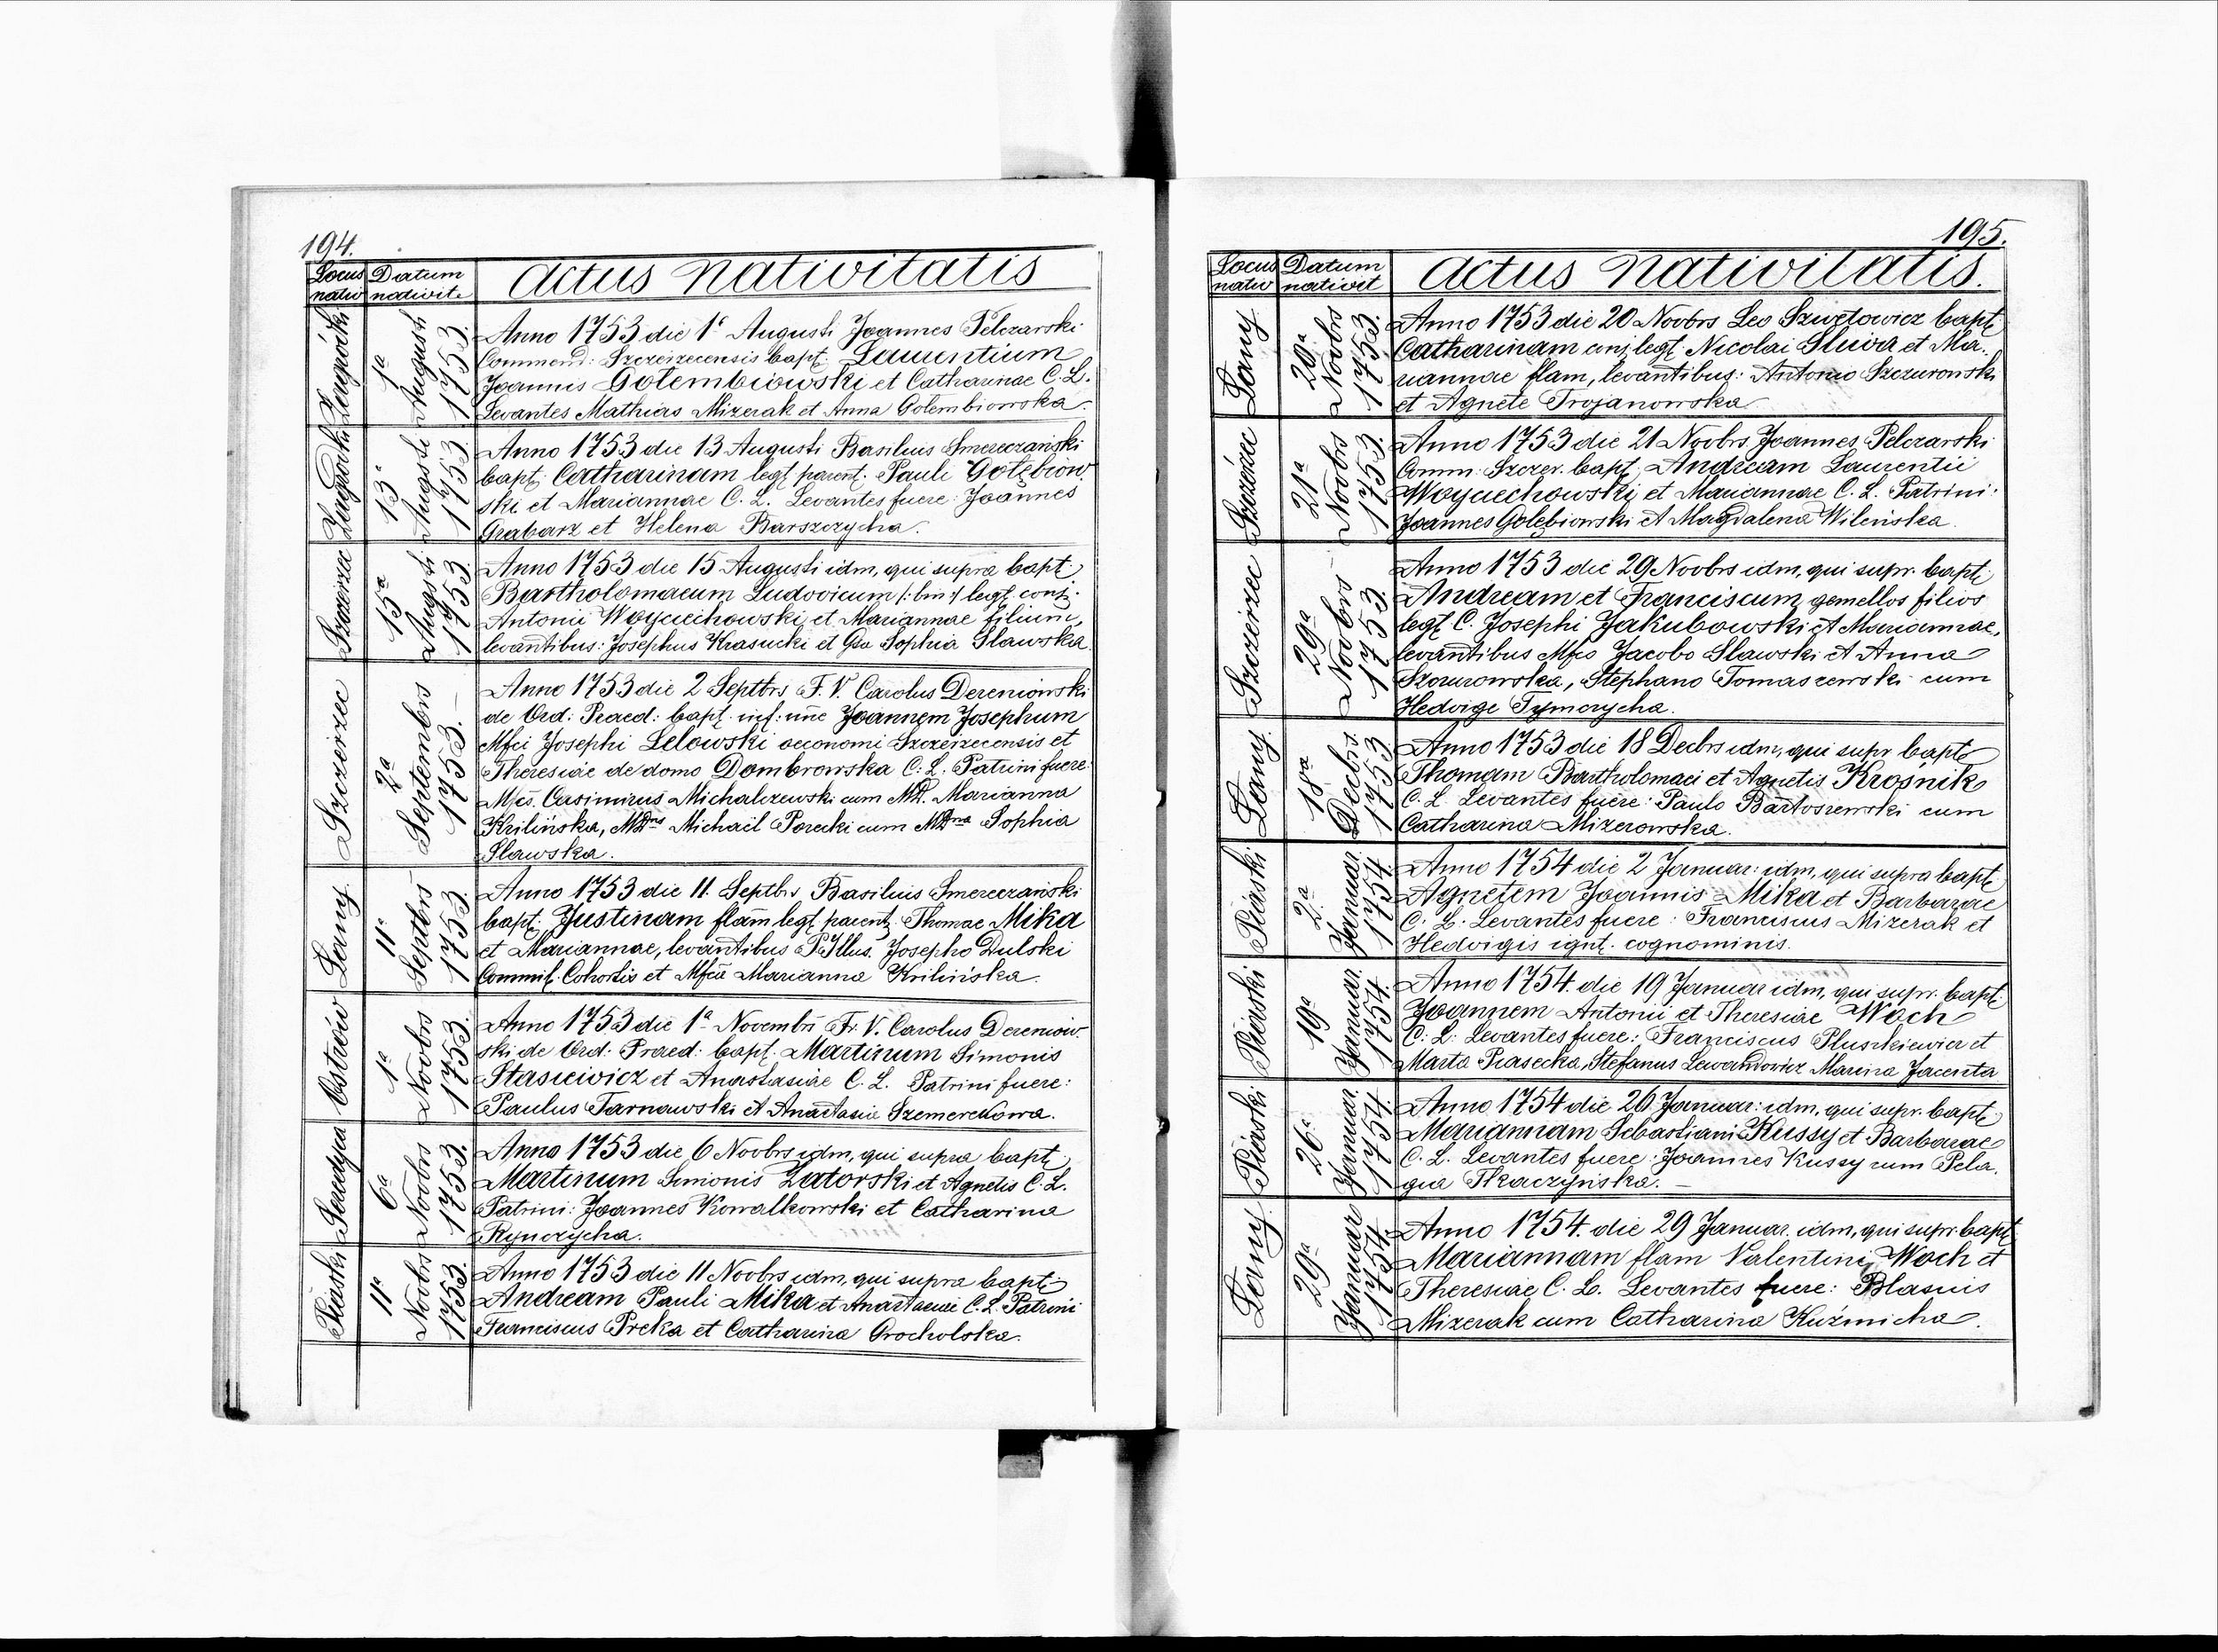 194.
Locus nativ
Datum nativit.
Actus Nativitatis
Zagródki
1a Augusti 1753.
Anno 1753 die 1a Augusti Joannes Pelczarski
Commend: Szczerzecensis bapt. Laurentium
Joannis Gołembiowski et Catharinae C. L.
Levantes Mathias Mizerak et Anna Gołembiowska.
Zagródki
13a Augusti 1753.
Anno 1753 die 13 Augusti Basilius Smereczański
bapt: Catharinam legt. parent. Pauli Gołębiow
ski et Mariannae C. L. Levantes fuere: Joannes
Grabarz et Helena Barszczycha.
Szczerzec
15a Augusti 1753.
Anno 1753 die 15 Augusti idm, qui supra bapt.
Bartholomaeum Ludovicum /: bin :/ legt. conj.
Antonii Woyciechowski et Mariannae filium,
levantibus: Josephus Krasucki et Gsa Sophia Sławska
Szczerzec
2a Septembrs 1753.
Anno 1753 die 2 Septbrs F. V. Carolus Dereniowski
de Ord: Praed: bapt. inf: une Joannem Josephum
Mfci Josephi Lelowski oeconomi Szczerzecensis et
Theresiae de domo Dombrowska C: L. Patrini fuere:
Mfcs. Casimirus Michalczewski cum MD. Marianna
Krilińska, MDns Michaël Porecki cum MDna Sophia
Sławska.
Łany
11a Septbrs 1753.
Anno 1753 die 11. Septbrs Basilius Smereczański
bapt: Justinam flam legt. parent. Thomae Mika
et Mariannae, levantibus P. Yllus. Josepho Dulski
Commil. Cohortis et Mfca Marianna Krilińska.
Ostrów
1a Novbrs 1753.
Anno 1753 die 1a Novembri Fr. V. Carolus Dereniow
ski de Ord: Praed: bapt. Martinum Simonis
Stasiewicz et Anastasiae C. L. Patrini fuere:
Paulus Tarnawski et Anastasia Szemerekowa.
Serdyca
6a Novbrs 1753.
Anno 1753 die 6 Novbrs idm, qui supra bapt.
Martinum Simonis Zatorski et Agnetis C. L.
Patrini: Joannes Kowalkowski et Catharina
Rynczycha.
Piaski
11a Novbrs 1753.
Anno 1753 die 11 Novbrs idm, qui supra bapt.
Andream Pauli Mika et Anastasiae C. L. Patrini
Franciscus Preka et Catharina Grocholska.
195.
Locus nativ
Datum nativit
Actus Nativitatis.
Łany
20a Novbrs 1753.
Anno 1753 die 20 Novbrs Leo Szwetowicz bapt.
Catharinam conj. legt. Nicolai Śliwa et Ma-
riannae flam, levantibus: Antonio Szczurowski
et Agnete Trojanowska.
Szczerzec
21a Novbrs 1753.
Anno 1753 die 21 Novbrs Joannes Pelczarski
Comm: Szczer. bapt. Andream Laurentii
Woyciechowski et Mariannae C. L. Patrini:
Joannes Gołębiowski et Magdalena Wileńska.
Szczerzec
29a Novbrs 1753.
Anno 1753 die 29 Novbrs idm, qui supr. bapt.
Andream et Franciscum gemellos filios
legt. C. Josephi Jakubowski et Mariannae,
levantibus Mfco Jacobo Sławski et Anna
Szczurowska, Stephano Tomaszewski cum
Hedvige Tymczycha.
Łany
18a Decbrs. 1753
Anno 1753 die 18 Decbrs idm, qui supr bapt.
Thomam Bartholomaei et Agnetis Krośnik
C. L. Levantes fuere: Paulo Bartoszewski cum
Catharina Mizerowska.
Piaski
2a Januar. 1754.
Anno 1754 die 2 Januar: idm, qui supra bapt.
Agnetem Joannis Mika et Barbarae
C. L. Levantes fuere: Franciscus Mizerak et
Hedvigis ignt. cognominis.
Piaski
19a Januar. 1754.
Anno 1754. die 19 Januar idm, qui supr. bapt.
Joannem Antonii et Theresiae Woch
C: L: Levantes fuere: Franciscus Pluszkiewicz et
Marta Piasecka, Stefanus Lewandowicz Marina Jacenta
Piaski
26a Januar 1754.
Anno 1754 die 26 Januar: idm, qui supr. bapt.
Mariannam Sebastiani Kussy et Barbarae
C. L. Levantes fuere: Joannes Kussy cum Pela-
gia Tkaczyńska.
Łany
29a Januar 1754.
Anno 1754. die 29 Januar. idm, qui supr. bapt.
Mariannam flam Valentini Woch et
Theresiae C. L. Levantes fuere: Blasius
Mizerak cum Catharina Kuźmicha.